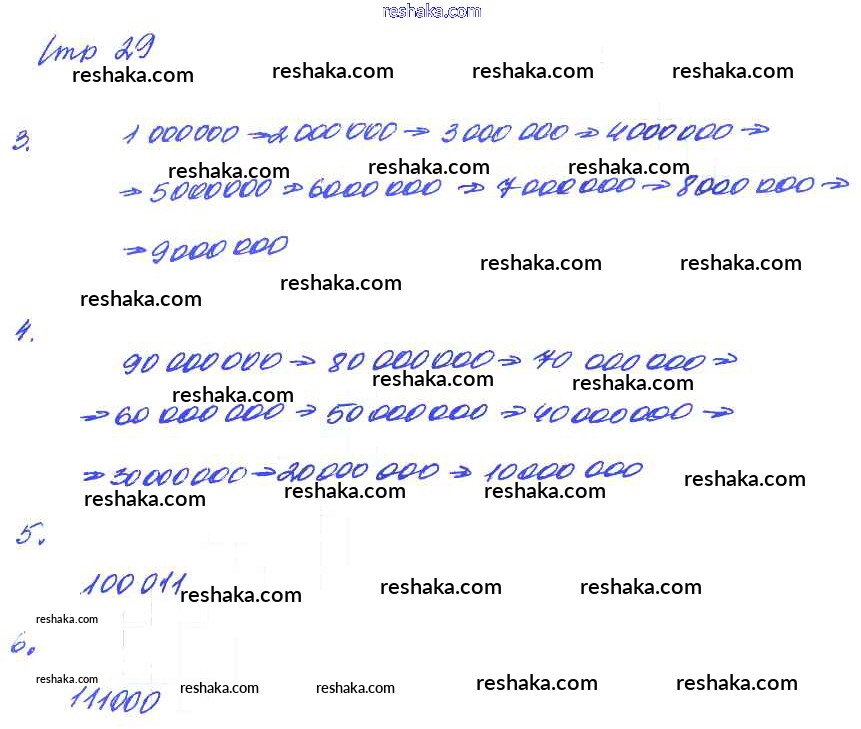 reshaka.com
Стр 29
reshaka.com reshaka.com reshaka.com reshaka.com
3. 1 000000 → 2 000 000 → 3 000 000 → 4000 000 →
reshaka.com reshaka.com reshaka.com
→ 5000000 → 6000 000 → 7 000 000 → 8000 000 →
→ 9000 000
reshaka.com reshaka.com reshaka.com reshaka.com
4.
90 000 000 → 80 000 000 → 70 000 000 →
reshaka.com reshaka.com reshaka.com
→ 60 000 000 → 50 000 000 → 40 000 000 →
→ 30 000 000 → 20 000 000 → 10 000 000
reshaka.com reshaka.com reshaka.com reshaka.com
5.
100 011
reshaka.com reshaka.com reshaka.com
reshaka.com
6.
reshaka.com
111000
reshaka.com reshaka.com reshaka.com reshaka.com